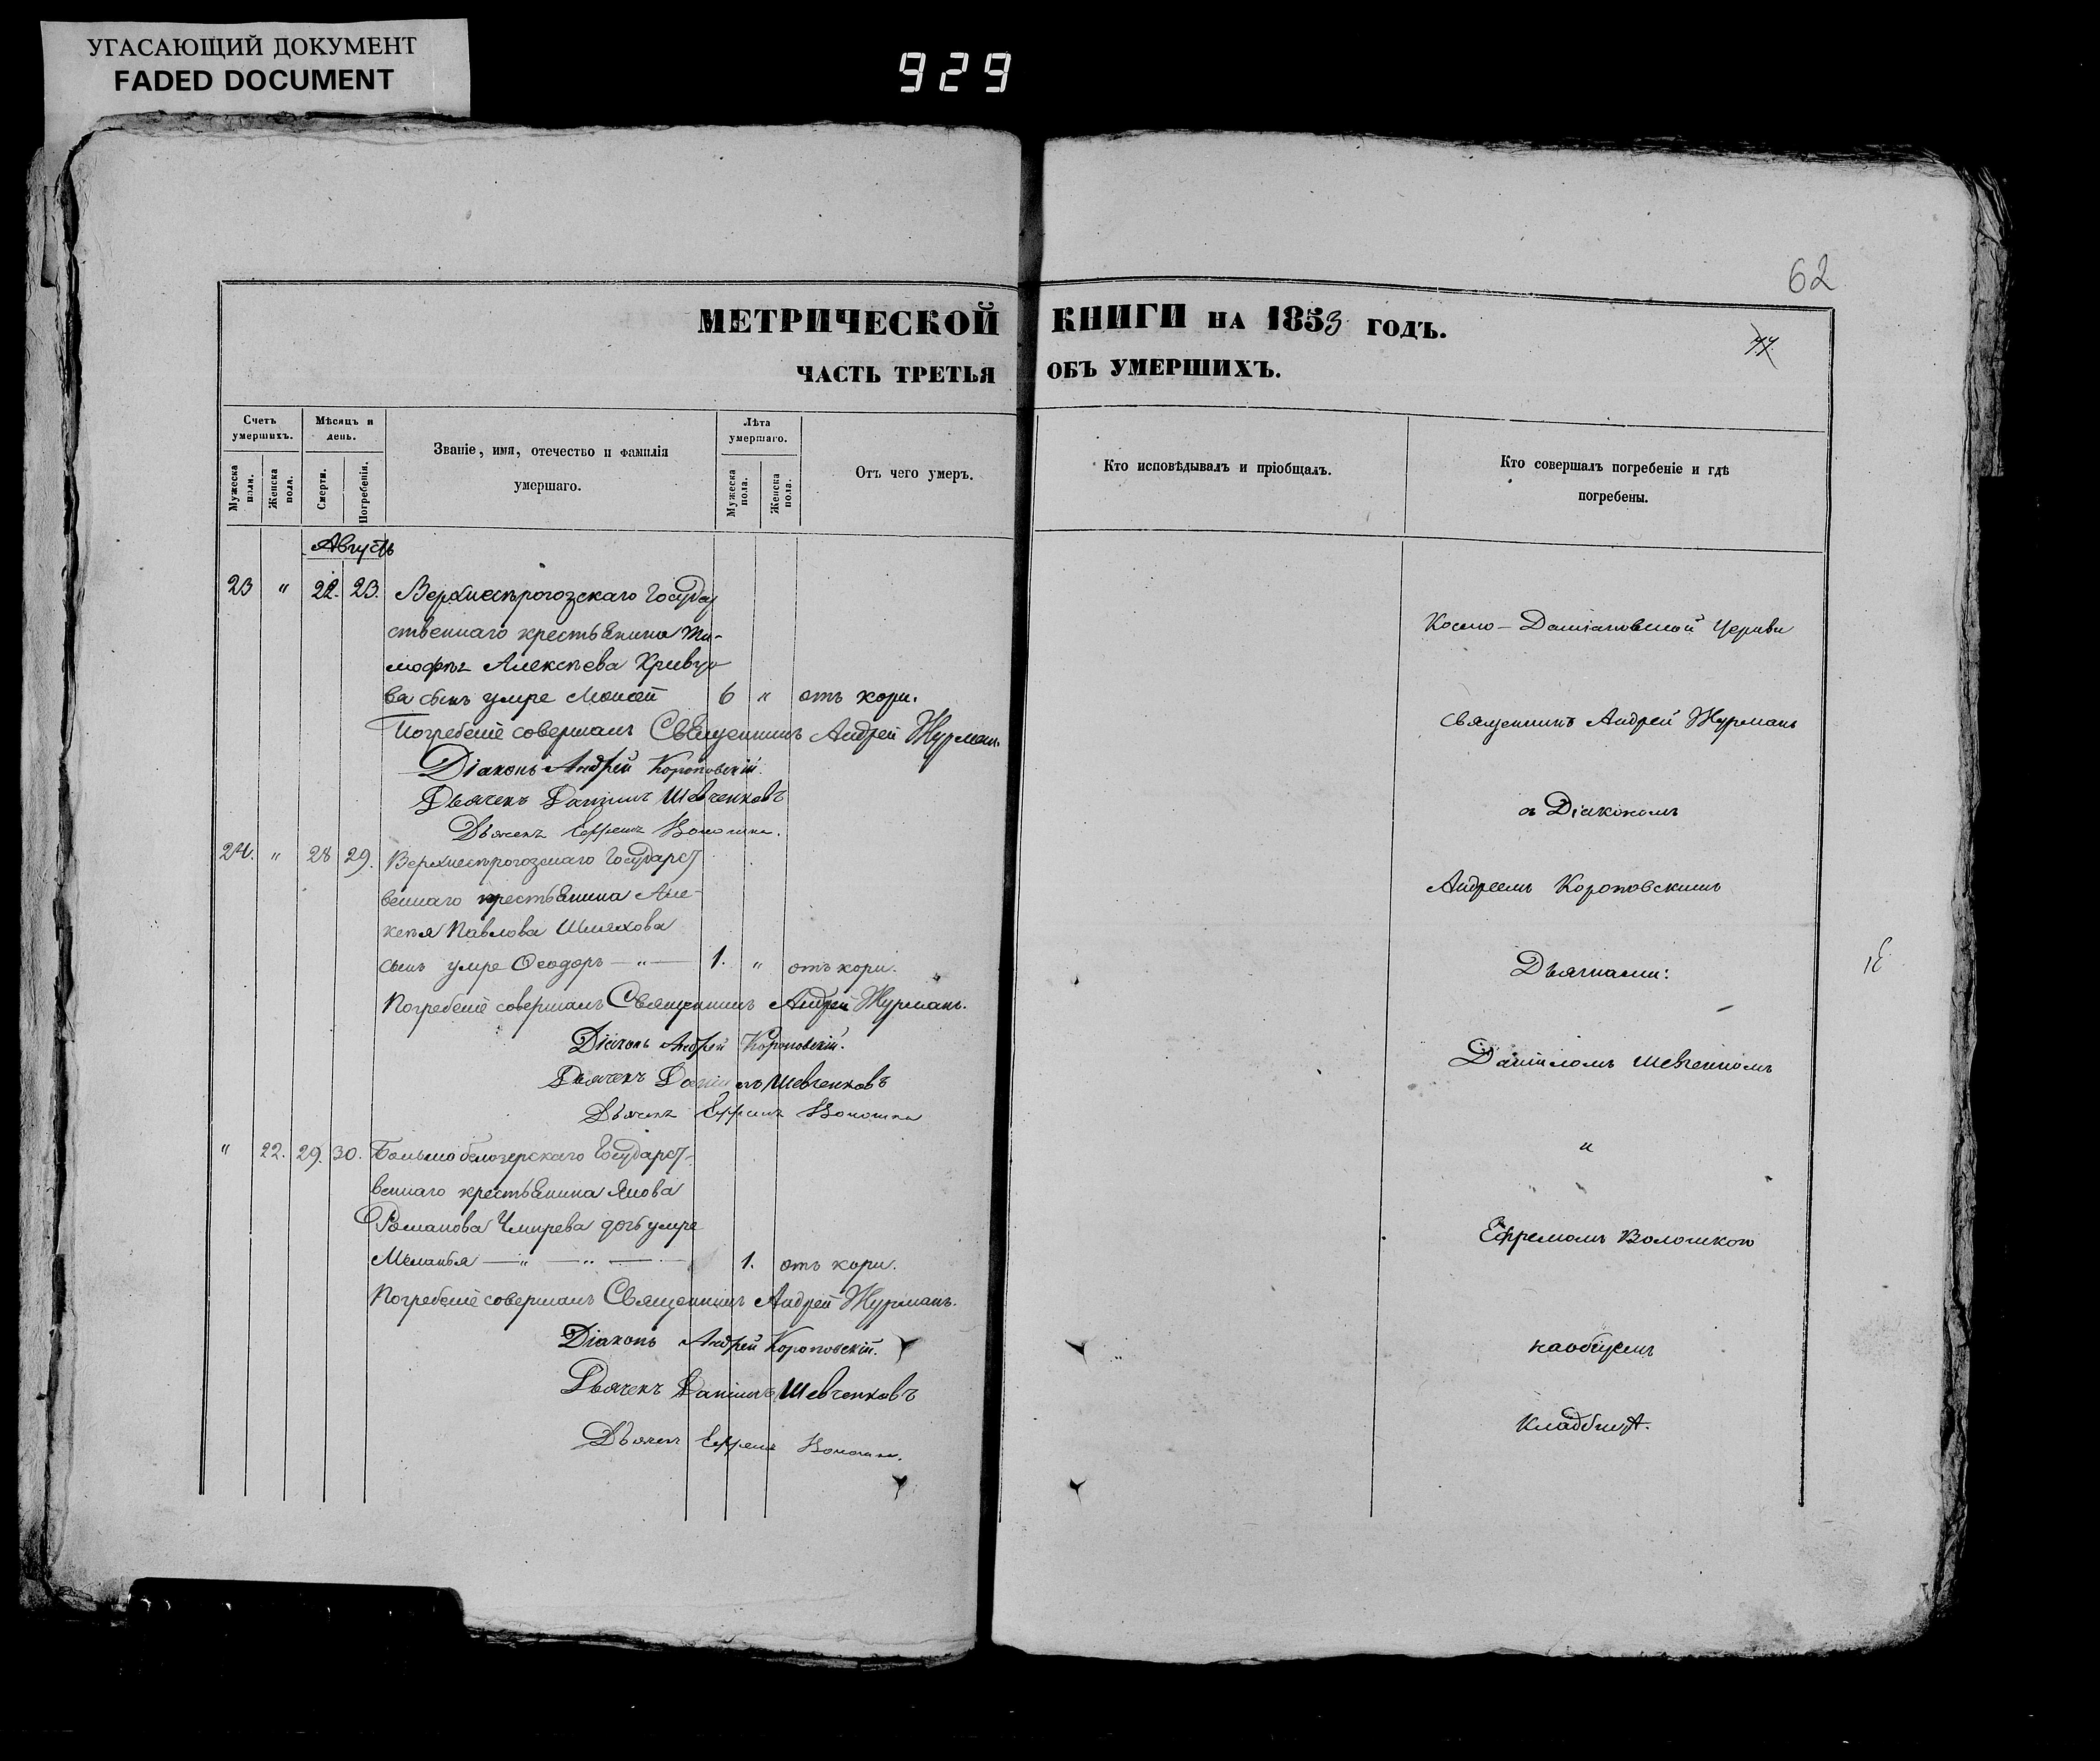 УГАСАЮЩИЙ ДОКУМЕНТ
FADED DOCUMENT
929
62
МЕТРИЧЕСКОЙ КНИГИ НА 1853 ГОДЪ.
77
ЧАСТЬ ТРЕТЬЯ ОБЪ УМЕРШИХЪ.
Счетъ умершихъ.
Мужеска пола.
Женска пола.
Мѣсяцъ и день.
Смерти.
Погребенія.
Званіе, имя, отечество и фамилія
умершаго.
Лѣта умершаго.
Мужеска пола.
Женска пола.
Отъ чего умеръ.
Кто исповѣдывалъ и пріобщалъ.
Кто совершалъ погребеніе и гдѣ
погребены.
Августъ
23 " 22. 23. Верхнесѣрогозскаго Государ
ственнаго крестьянина Ти-
мофѣя Алексѣева Кривцо
ва сынъ умре Моисей 6 " отъ кори.
Погребеніе совершалъ Священникъ Андрей Журманъ
Діаконъ Андрей Короповскій.
Дьячекъ Даніилъ Шевченковъ
Дьячекъ Ефремъ Волошка.
24. " 28 29. Верхнесѣрогозскаго Государст
веннаго крестьянина Але-
ксѣя Павлова Шляхова
сынъ умре Ѳеодоръ — " — 1. " отъ кори.
Погребеніе совершалъ Священникъ Андрей Журманъ.
Діаконъ Андрей Короповскій.
Дьячекъ Даніилъ Шевченковъ
Дьячекъ Ефремъ Волошка
" 22. 29. 30. Большобелозерскаго Государст-
веннаго крестьянина Якова
Романова дочь умре
Меланья — " — " — 1. отъ кори.
Погребеніе совершалъ Священникъ Андрей Журманъ.
Діаконъ Андрей Короповскій.
Дьячекъ Даніилъ Шевченковъ
Дьячекъ Ефремъ Волошка.
Космо-Даміановской Церкви
Священникъ Андрей Журманъ
съ Діакономъ
Андреемъ Короповскимъ
Дьячками:
Даніиломъ Шевченкомъ
и
Ефремомъ Волошкою
на общемъ
кладбищѣ.